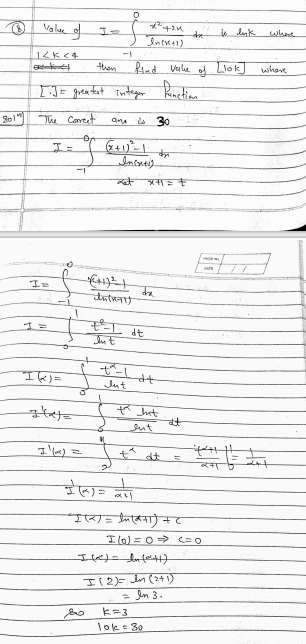 ⑧ Value of I = ∫_{-1}^{0} (x²+2x)/ln(x+1) dx is lnk where
1<k<4 then find value of [10k] where
[.] = greatest integer function
Solⁿ) The correct ans is 30
I = ∫_{-1}^{0} ((x+1)²-1)/ln(x+1) dx
let x+1 = t
PAGE No.
DATE / /
I = ∫_{-1}^{0} ((x+1)²-1)/ln(x+1) dx
I = ∫_{0}^{1} (t²-1)/ln t dt
I(α) = ∫_{0}^{1} (t^α-1)/ln t dt
I'(α) = ∫_{0}^{1} (t^α ln t)/ln t dt
I'(α) = ∫ t^α dt = t^{α+1}/(α+1) |_{0}^{1} = 1/(α+1)
I'(α) = 1/(α+1)
I(α) = ln(α+1) + c
I(0) = 0 ⇒ c=0
I(α) = ln(α+1)
I(2) = ln(2+1)
= ln 3.
So k=3
10k = 30